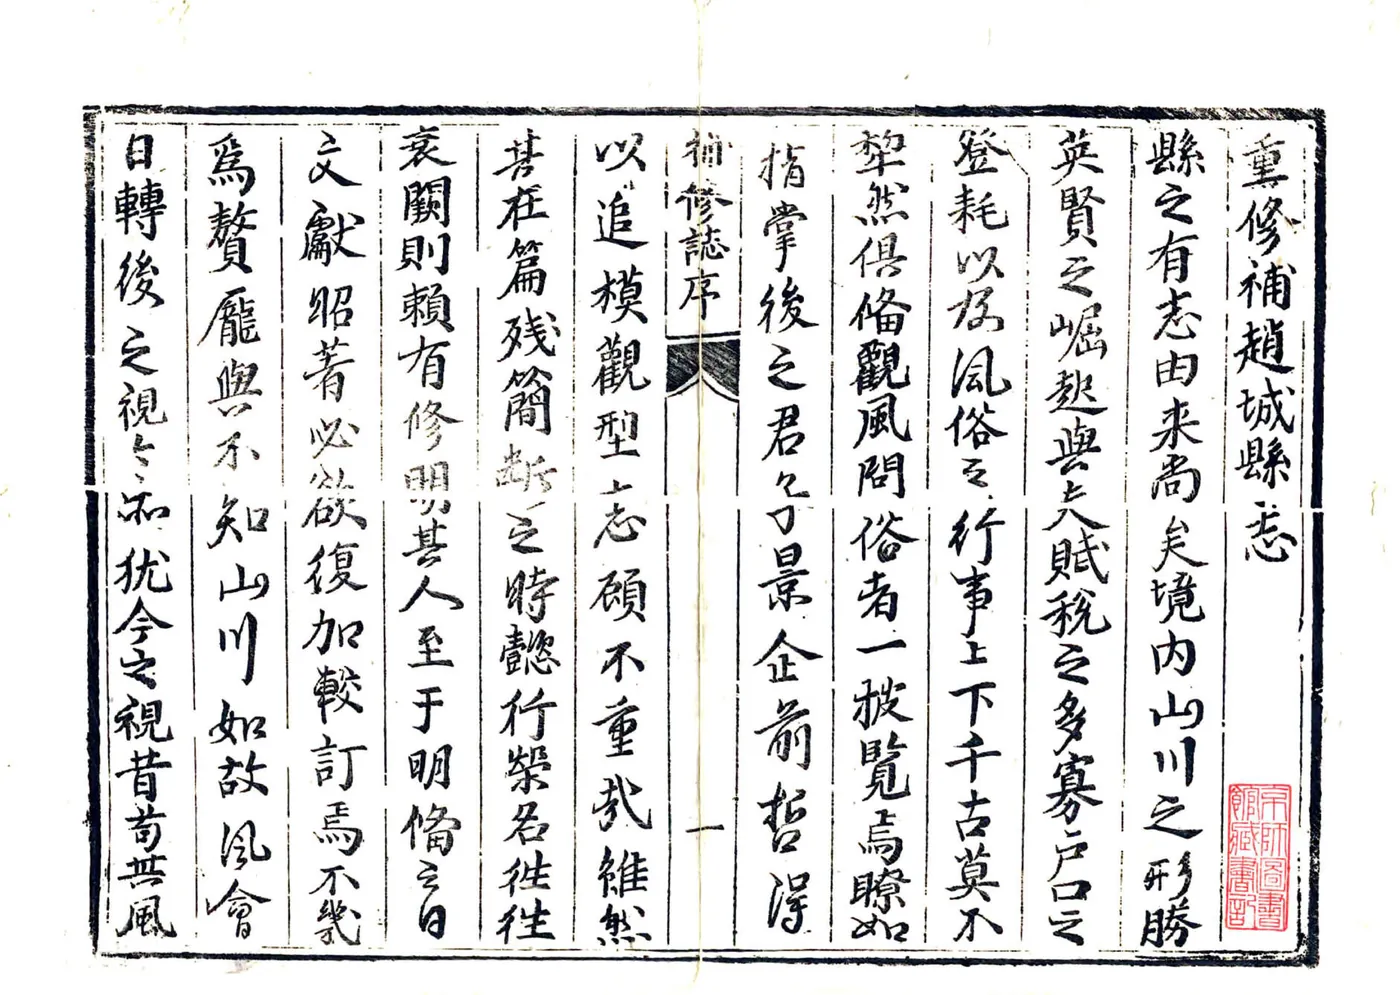 重修補趙城縣志
縣之有志由来尚矣境内山川之形勝
英賢之崛起與夫賦税之多寡户口之
登耗以及風俗之行事上下千古莫不
犂然俱俻觀風問俗者一披覧焉瞭如
指掌後之君子景企前哲得
補修誌序
一
以追模觀型志顧不重哉雖然
甚在篇残簡断之時懿行榮名徃徃
衰闕則賴有修明其人至于明俻之日
文獻昭著必欲復加較訂焉不幾
爲贅龐與不知山川如故風會
日轉後之視今亦犹今之視昔苟無風
京師圖書
館蔵書記